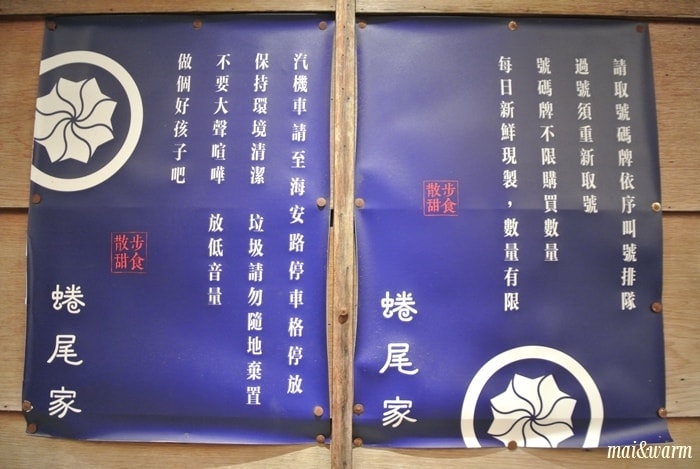 請取號碼牌依序叫號排隊
過號須重新取號
號碼牌不限購買數量
每日新鮮現製，數量有限
散步甜食
蜷尾家
汽機車請至海安路停車格停放
保持環境清潔 垃圾請勿隨地棄置
不要大聲喧嘩 放低音量
做個好孩子吧
散步甜食
蜷尾家
mai&warm